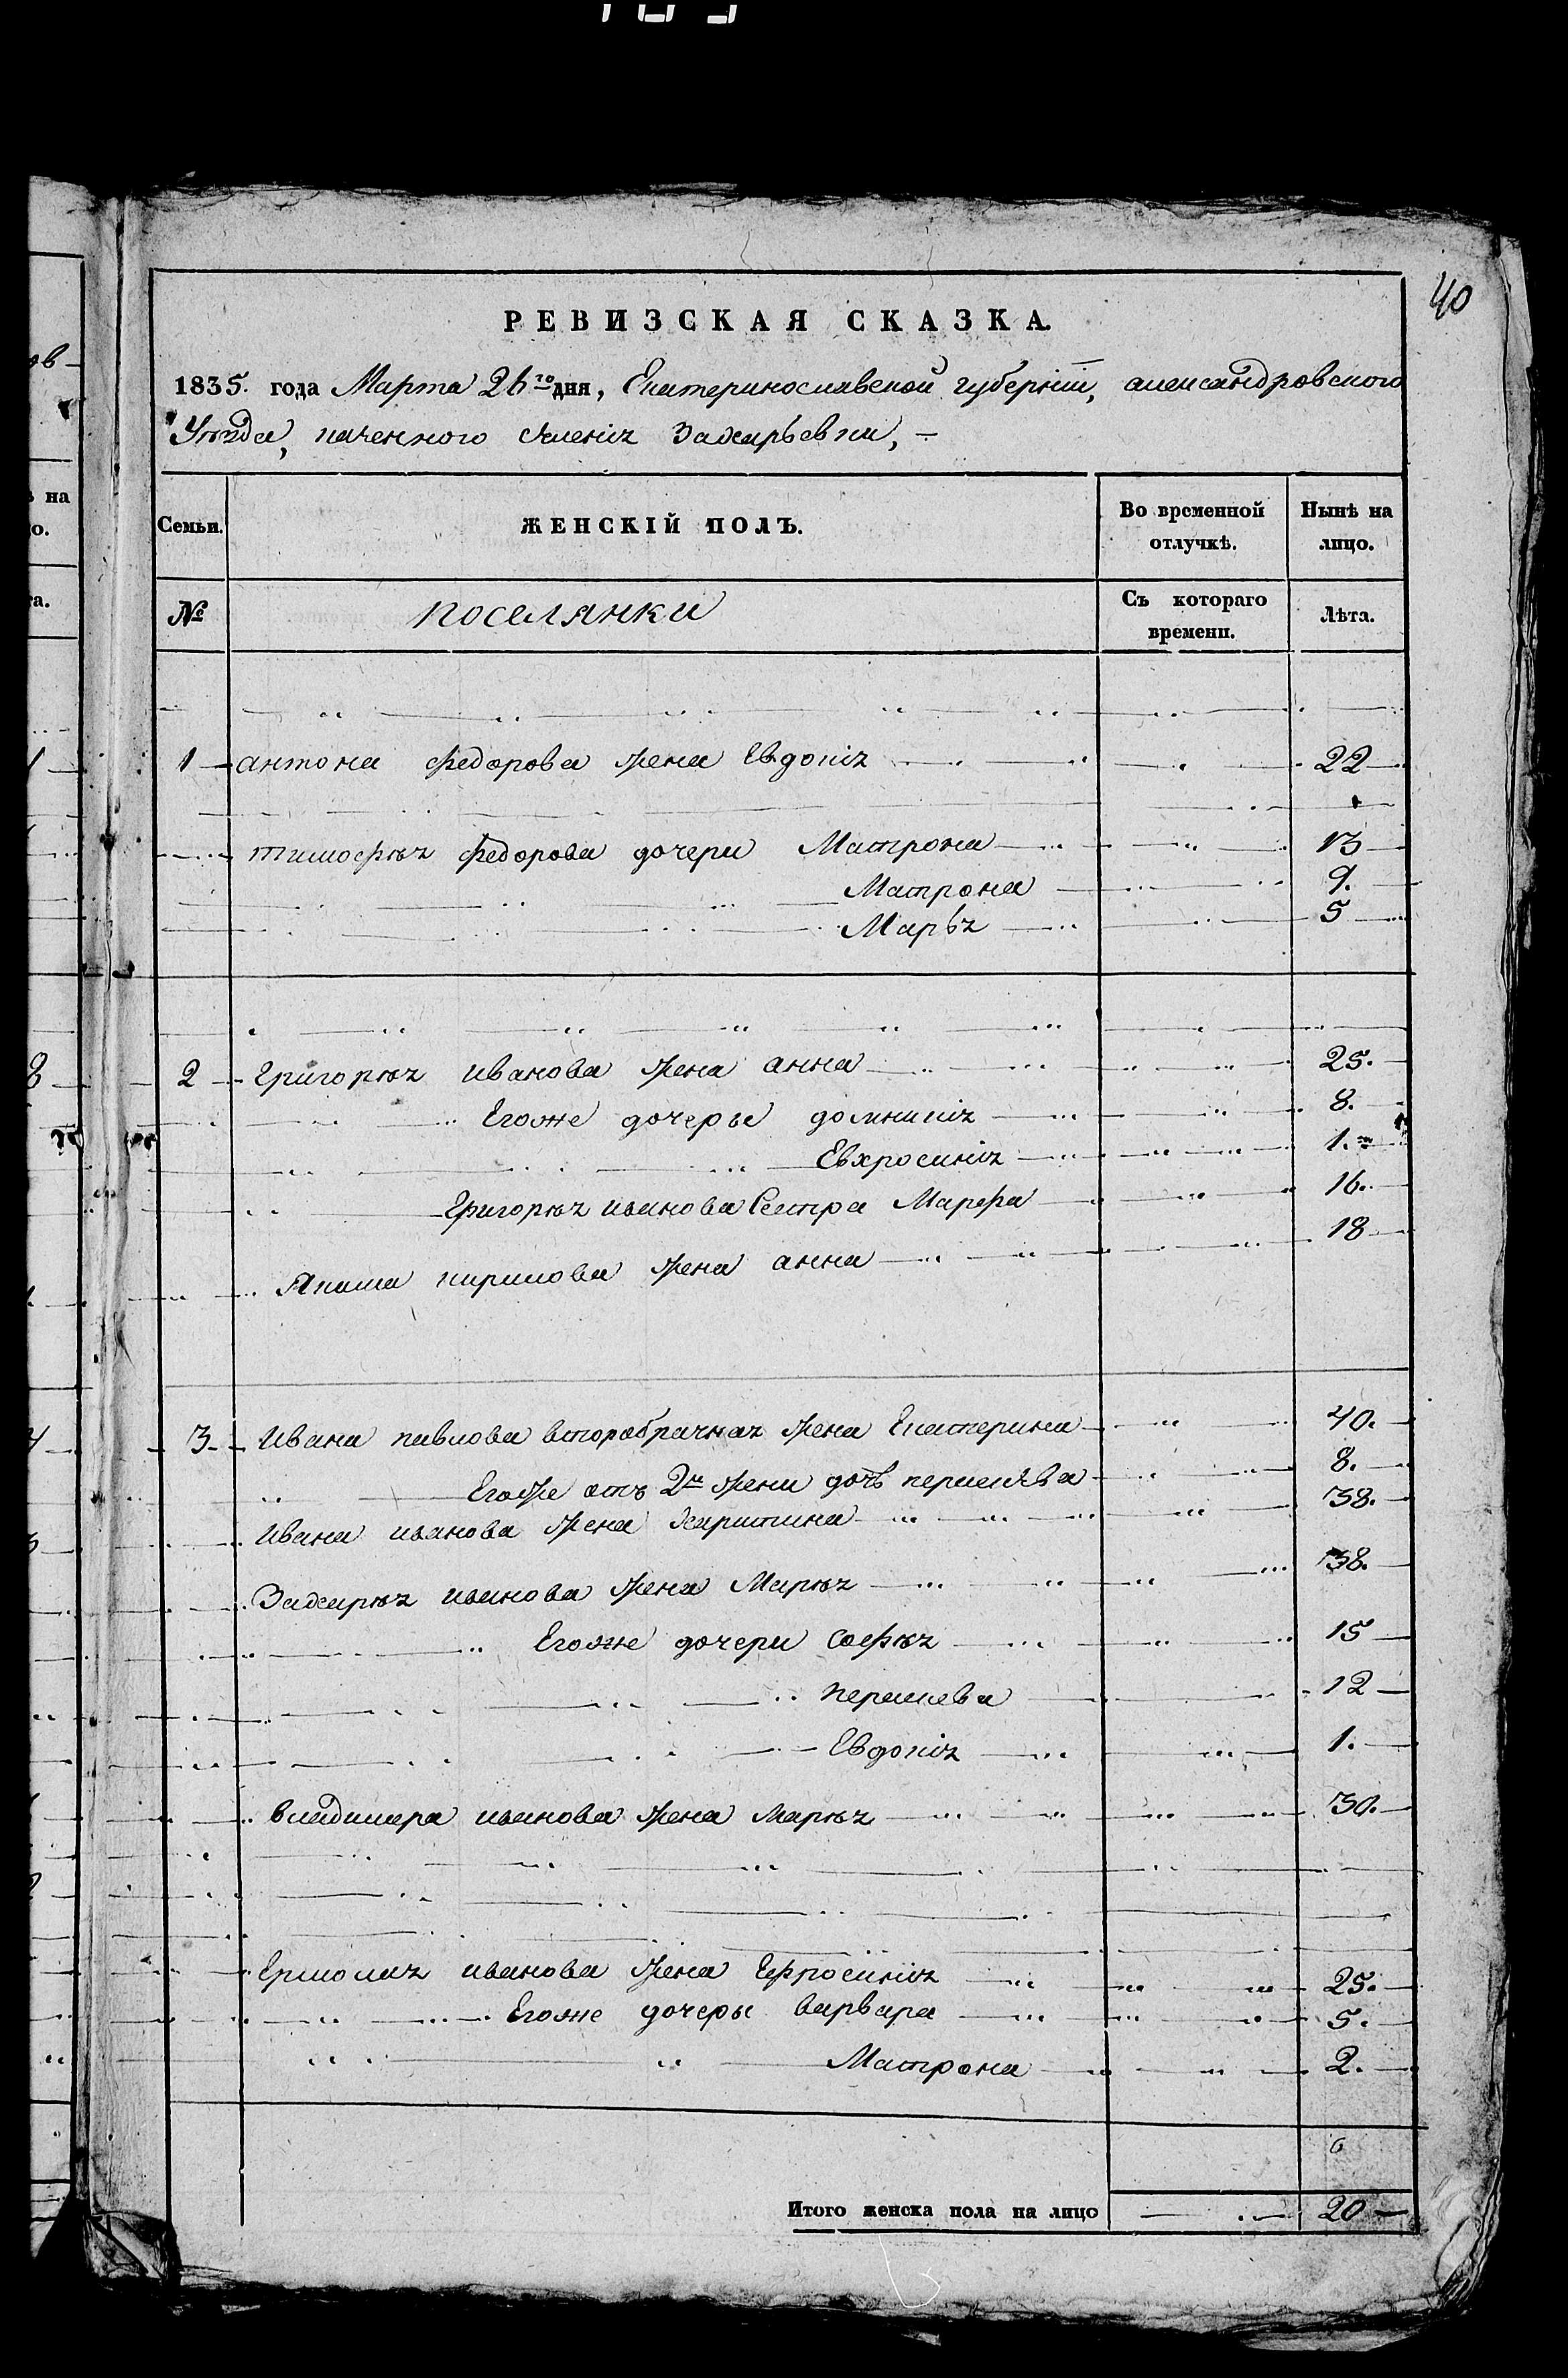 40
РЕВИЗСКАЯ СКАЗКА.
1835. года Марта 26го дня, Екатеринославской губерніи, александровского
Уѣзда, казенного селенія Захарьевки,
Семьи. ЖЕНСКІЙ ПОЛЪ. Во временной отлучкѣ. Нынѣ на лицо.
№ поселянки Съ котораго времени. Лѣта.
1 антона федорова жена Евдокія 22
тимофѣя федорова дочери Матрона 13
Матрона 9.
Марья 5
2 Григорѣя иванова жена анна 25.
Егоже дочеры домникія 8.
Евхросинія 1.
Григорѣя иванова Сестра Марфа 16.
Якима кирилова жена анна 18
3 Ивана павлова второбрачная жена Екатерина 40.
Егоже отъ 2й жени дочь паракѣва 8.
Ивана иванова жена Харитина 38.
Захарѣя иванова жена Марѣя 38.
Егоже дочери софѣя 15
перакева 12
Евдокія 1.
владимера иванова жена Марѣя 30.
Ермолая иванова жена Ефросинія 25.
Егоже дочеры варвара 5.
Матрона 2.
Итого женска пола на лицо 20
на
о.
а.